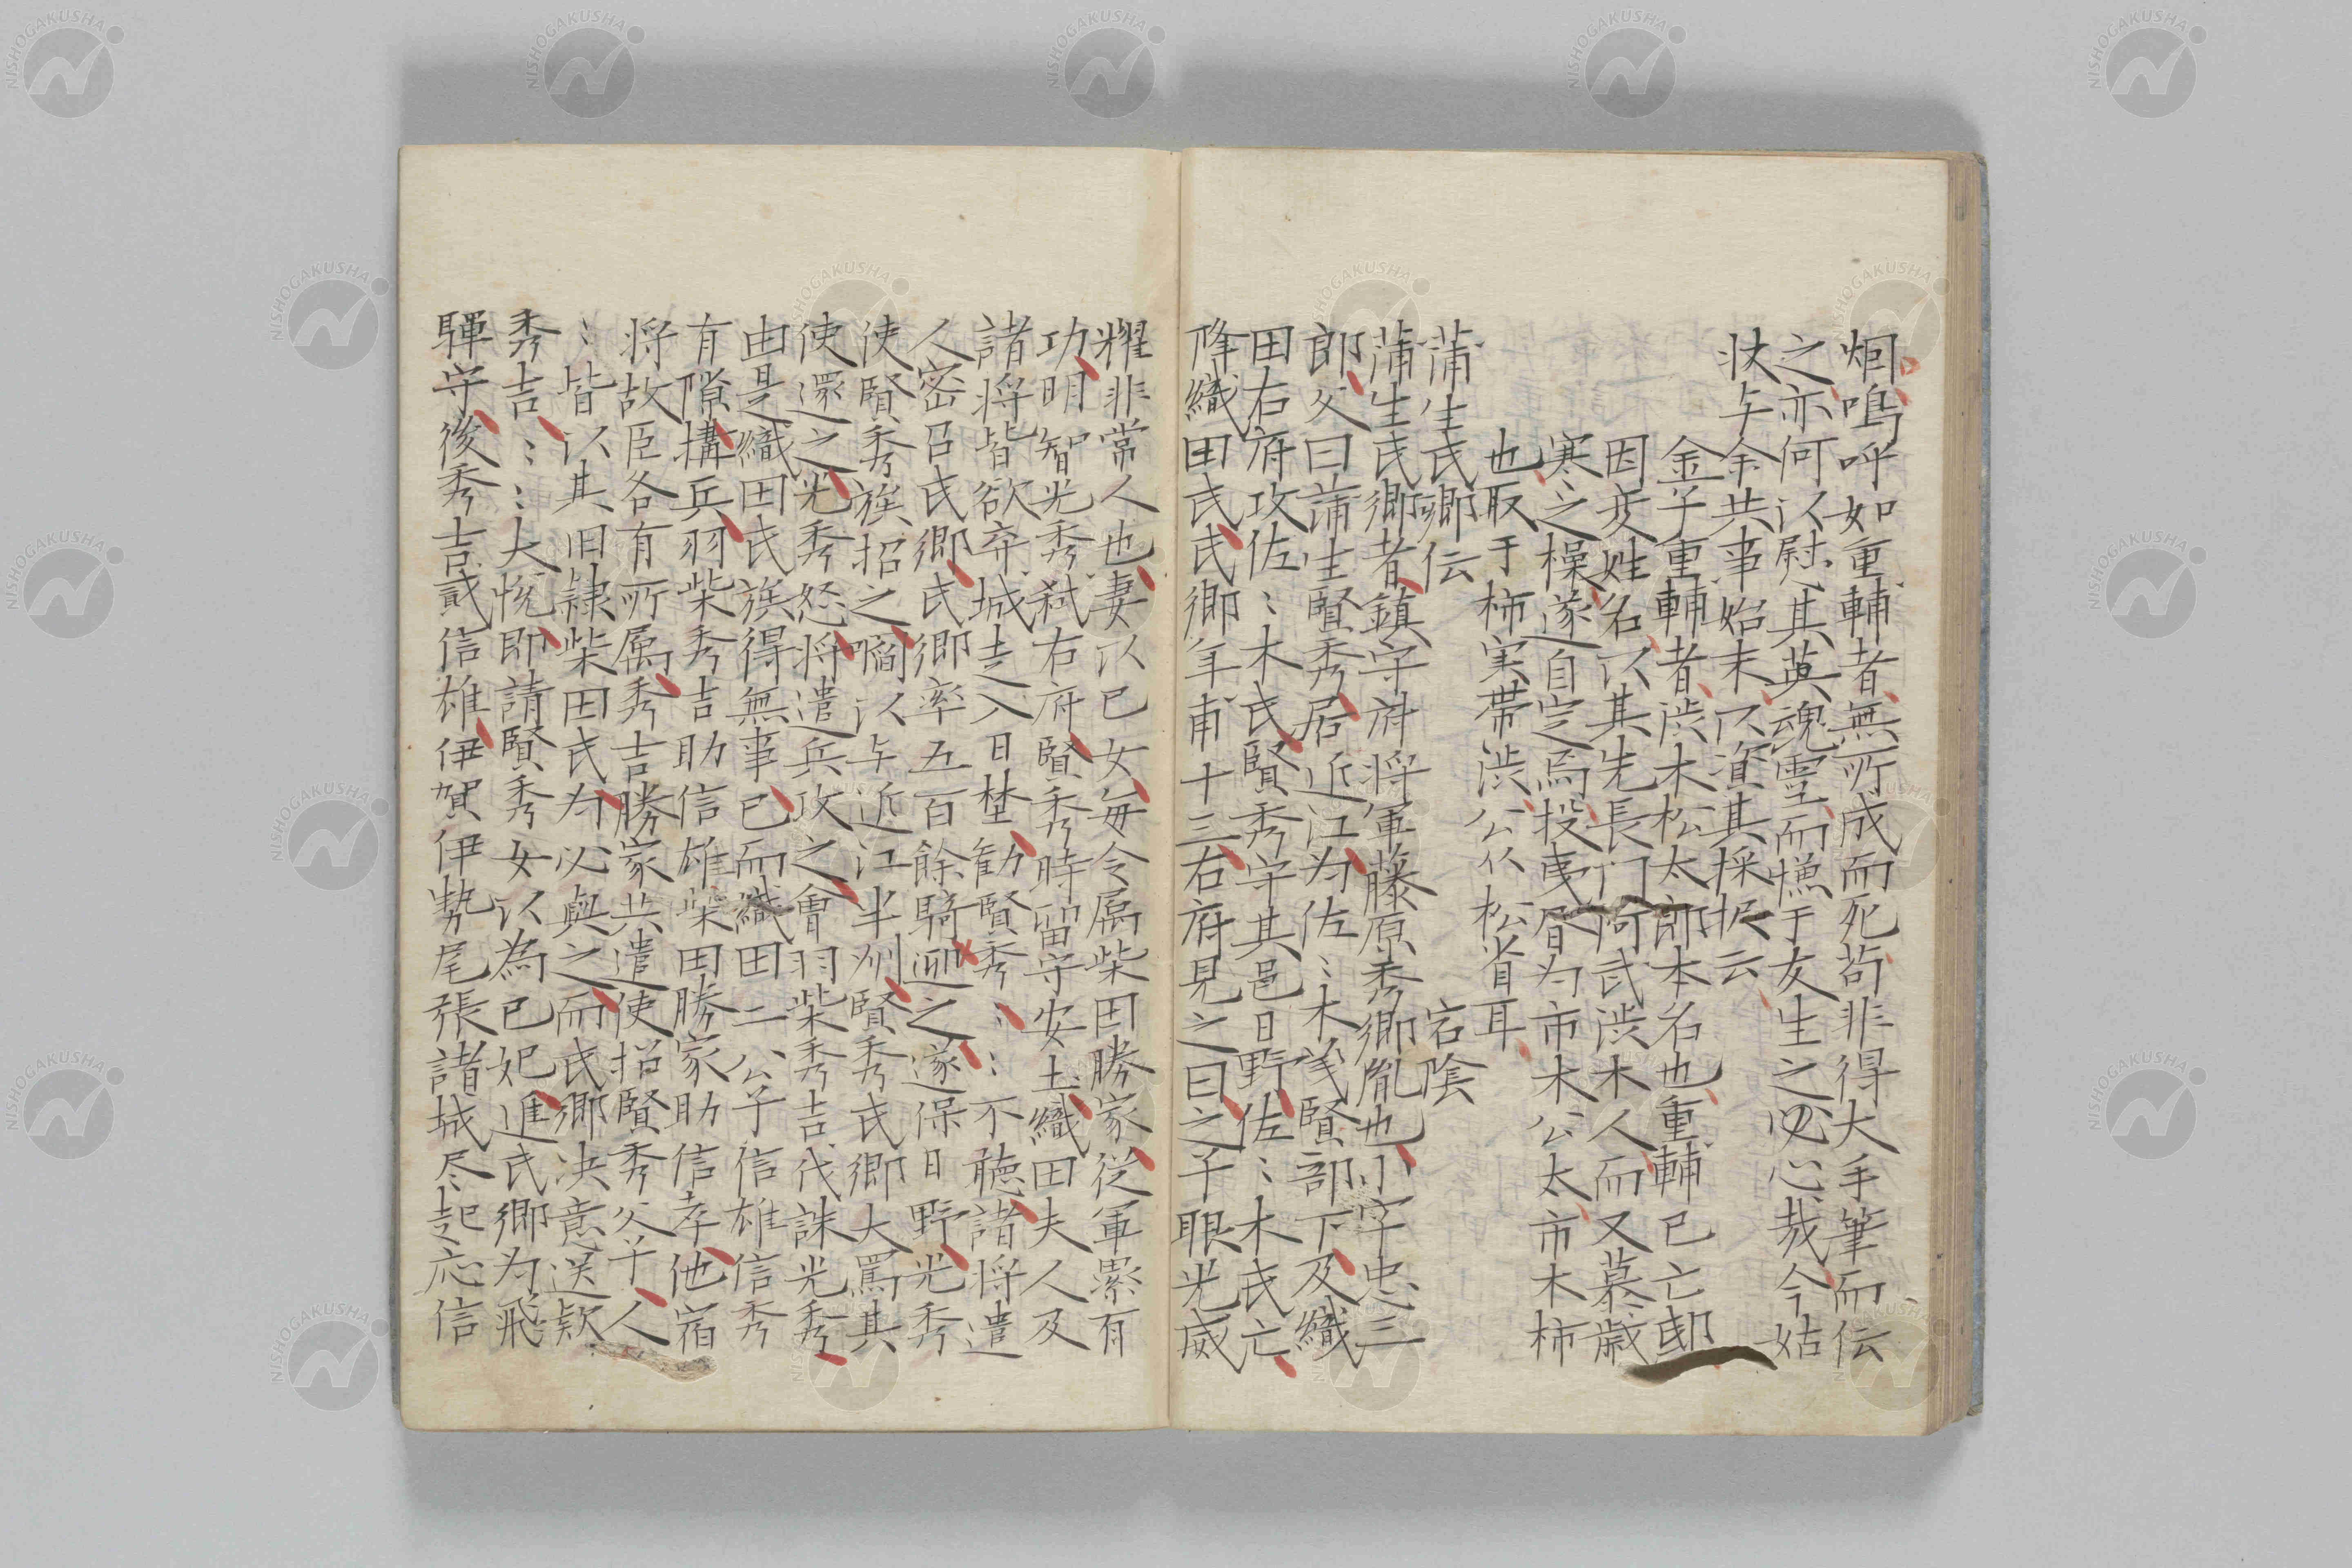 烱嗚呼如重輔者無所成而死苟非得大手筆而伝
之亦何以慰其英魂霊而慰于女生之心哉今姑
状与余共事始末以資其採択云
金子重輔者渋木松太郎本名也重輔已亡邸
因変姓名以其先長門阿武渋木人而又慕歳
寒之操遂自定焉投夷眉为市木公太市木柿
也取于柿実帯渋公从松省耳
蒲生氏郷伝 宕陰
蒲生氏郷者鎮守府将軍藤原秀郷胤也小字忠三
郎父曰蒲生賢秀居近江为佐〻木義賢部下及織
田右府攻佐〻木氏賢秀守其邑日野佐〻木氏亡
降織田氏氏郷年甫十三右府見之曰之子眼光威
耀非常人也妻以已女毎令属柴田勝家従軍累有
功明智光秀弑右府賢秀時留守安土織田夫人及
諸将皆欲弃城走入日埜勧賢秀〻〻不聴諸将遣
人密召氏郷氏郷率五百餘騎迎之遂保日野光秀
使賢秀族招之啗以与近江半州賢秀氏郷大罵其
使還之光秀怒将遣兵攻之會羽柴秀吉伐誅光秀
由是織田氏族得無事已而織田二公子信雄信秀
有隙搆兵羽柴秀吉助信雄柴田勝家助信孝他宿
将故臣各有所属秀吉勝家共遣使招賢秀父子人
〻皆以其旧隷柴田氏为必與之而氏郷决意送款
秀吉〻〻大悦即請賢秀女以為已妃進氏郷为飛
騨守後秀吉貳信雄伊賀伊勢尾張諸城尽起応信